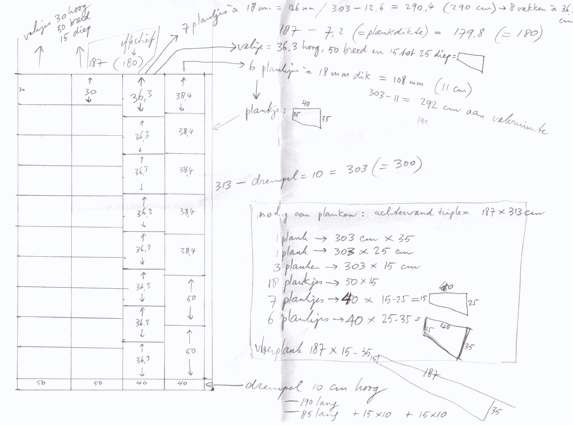 valijs 30 hoog
50 breed
15 diep
effectief
187 (180)
7 plankjes à 18 mm = 126 mm / 303 - 12,6 = 290,4 (290 cm) → 8 vakken à 36
cm
187 - 7,2 (= plankdikte) = 179,8 (= 180)
valijs = 36,3 hoog, 50 breed en 15 tot 25 diep =
6 plankjes à 18 mm dik = 108 mm (11 cm)
303 - 11 = 292 cm aan
plankje:
40
15
35
30
30
36,3
38,4
36,3
38,4
36,3
38,4
36,3
38,4
36,3
38,4
36,3
50
36,3
50
36,3
50
50
40
40
313 - drempel = 10 = 303 (= 300)
nodig aan planken: achterwand triplex 187 x 313 cm
1 plank → 303 cm x 35
1 plank → 303 x 25 cm
3 planken → 303 x 15 cm
18 plankjes → 50 x 15
7 plankjes → 40 x 15-25 =
15
40
25
6 plankjes → 40 x 25-35 =
40
35
vloerplank 187 x 15 - 35
15
187
35
drempel 10 cm hoog
- 190 lang
- 85 lang + 15x10 + 15x10